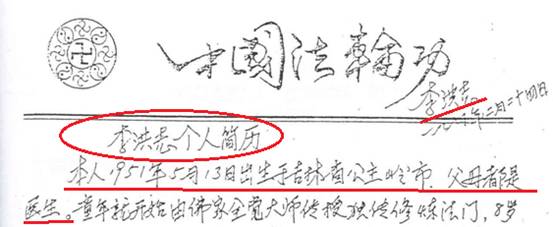 中國法輪功
李洪志
李洪志个人简历
本人1951年5月13日出生于吉林省公主岭市. 父母都是
医生。童年就开始由佛家全觉大师传授独传修炼法门,8岁